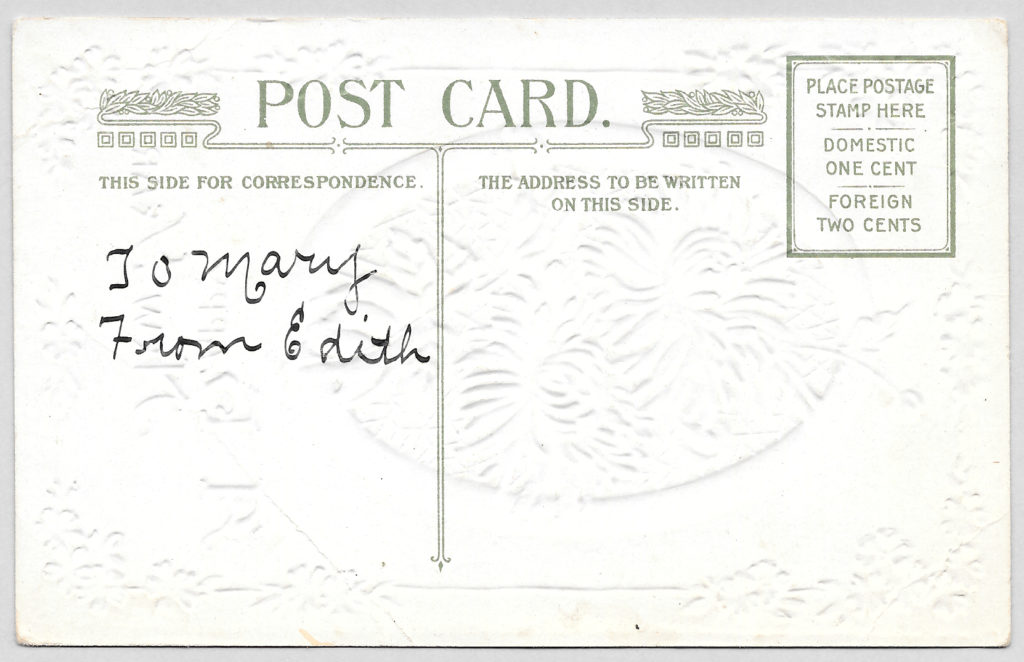 POST CARD.
PLACE POSTAGE
STAMP HERE
DOMESTIC
ONE CENT
FOREIGN
TWO CENTS
THIS SIDE FOR CORRESPONDENCE.
THE ADDRESS TO BE WRITTEN
ON THIS SIDE.
To Mary
From Edith